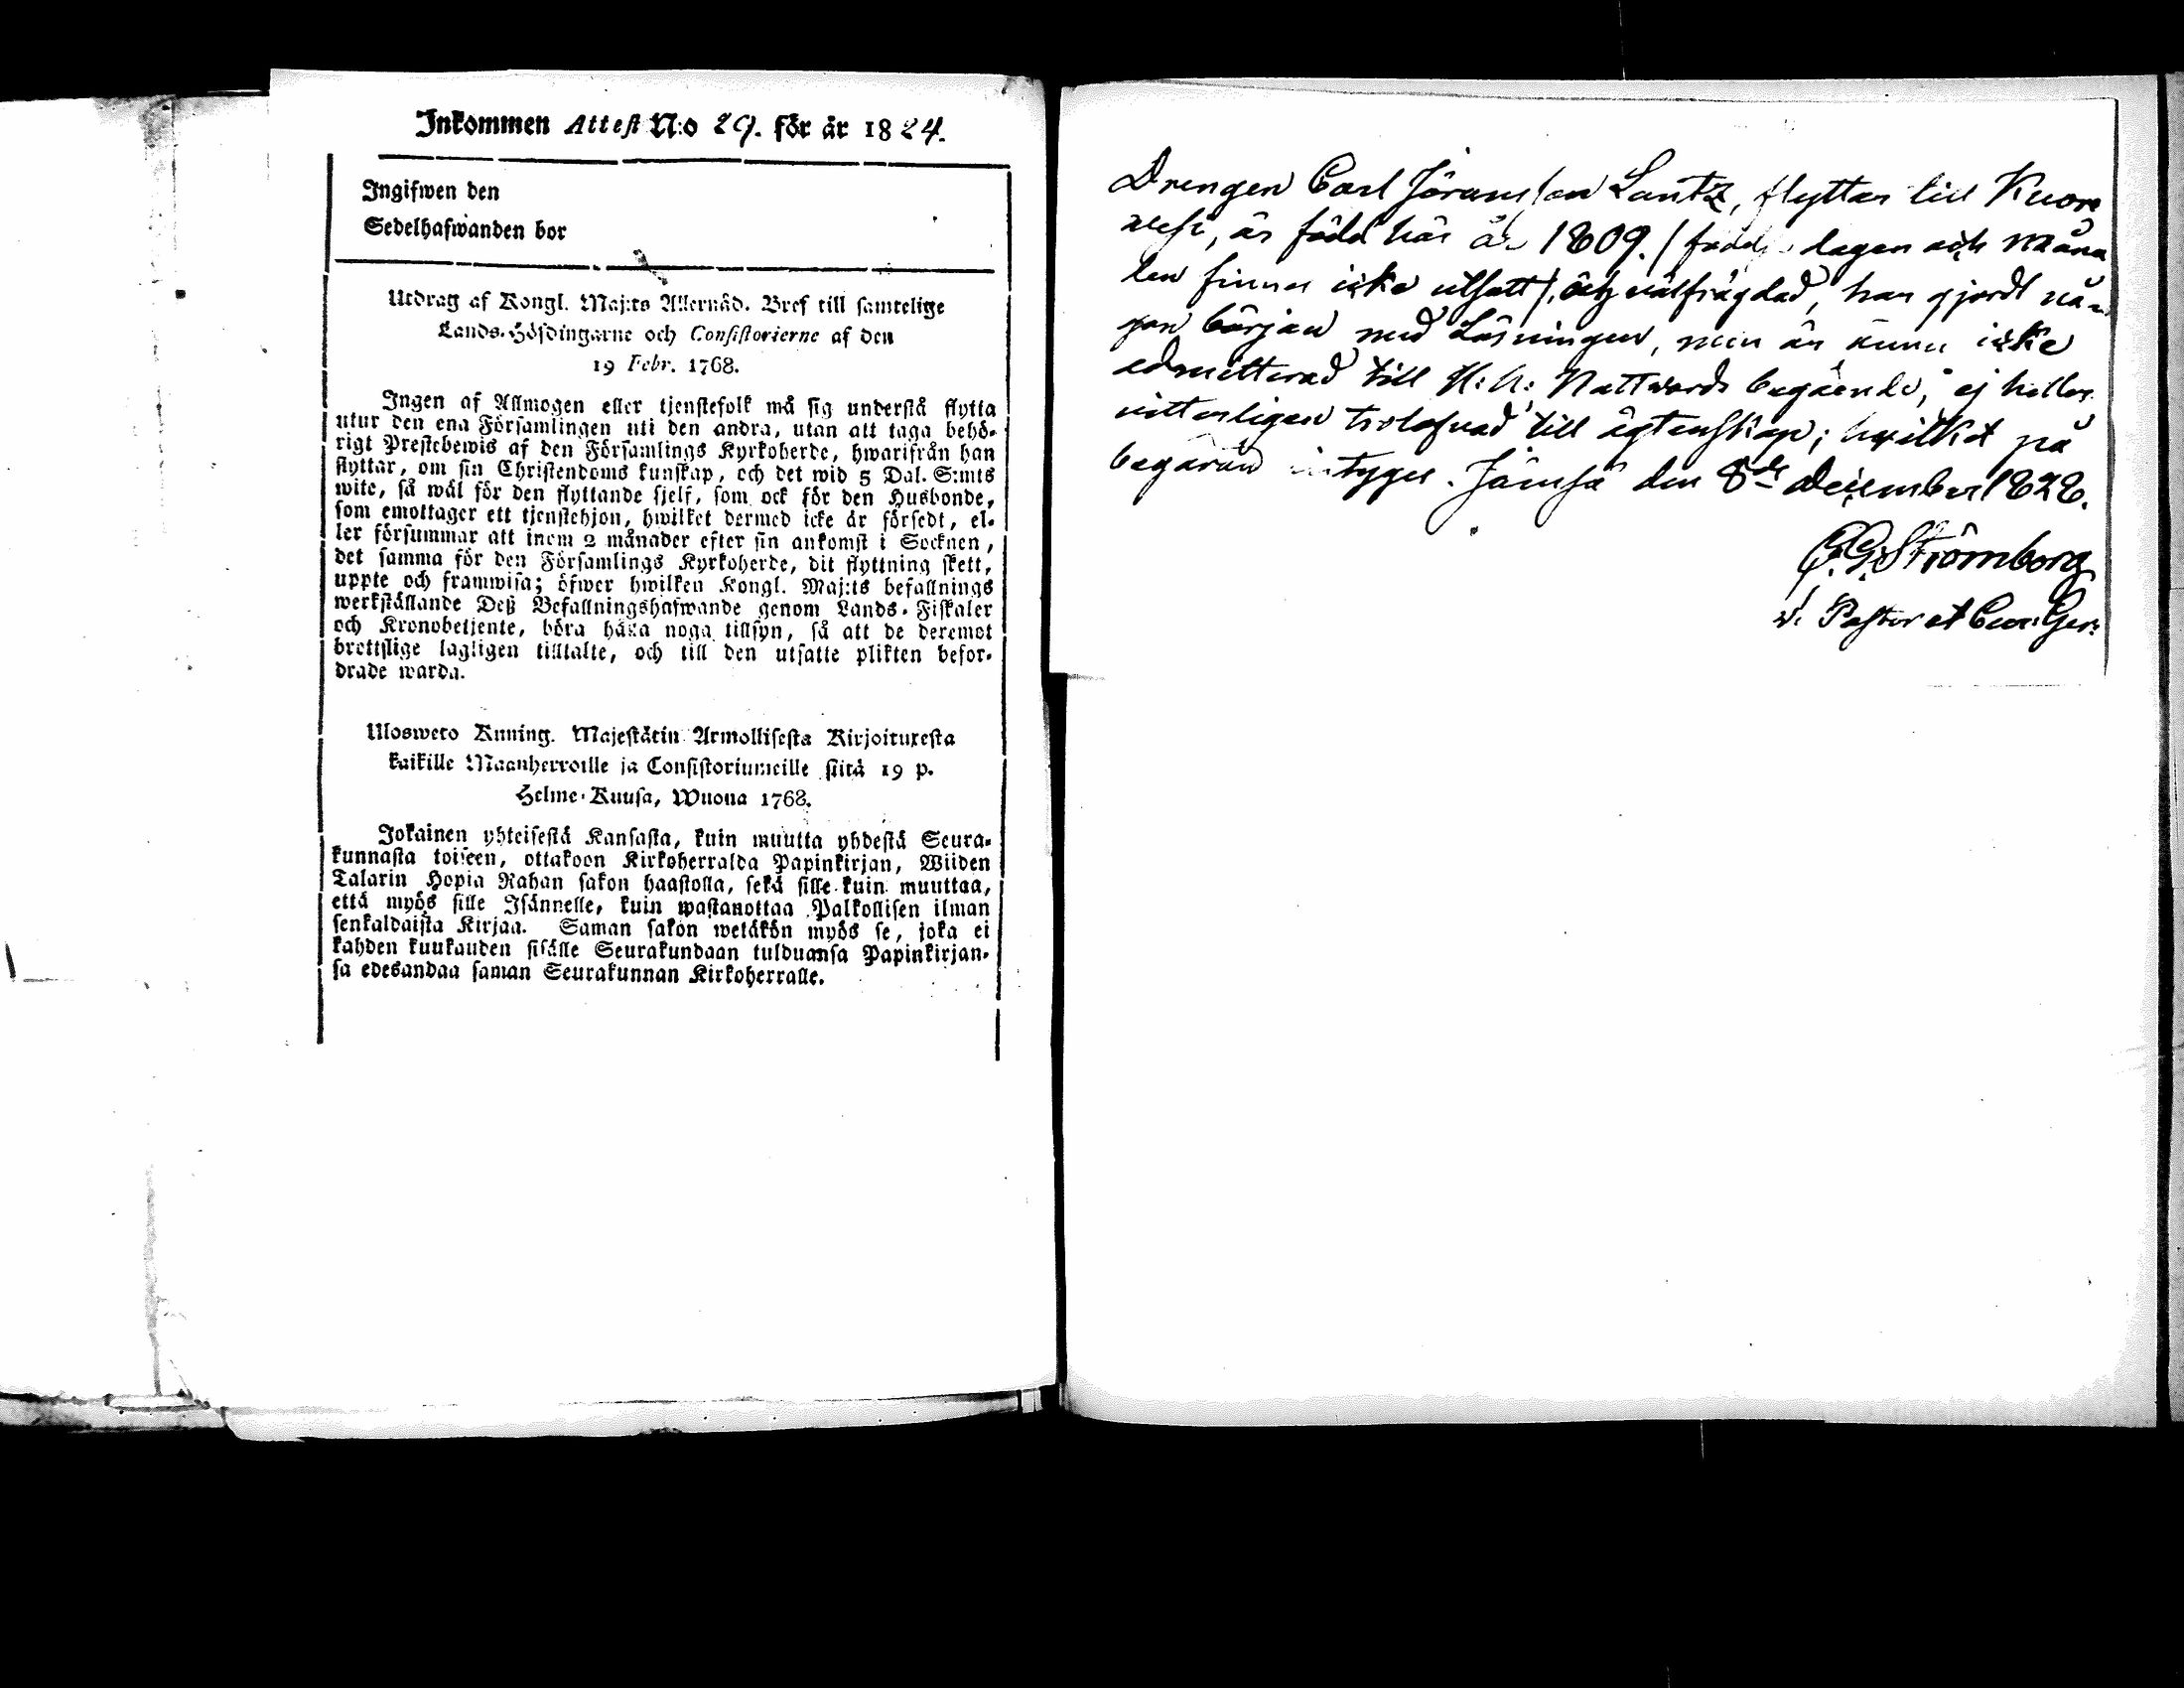 Inkommen Attest N:o 29. för år 1824.
Ingifwen den
Sedelhafwanden bor
Utdrag af Kongl. Maj:ts Allernåd. Bref till samtelige
Lands-Höfdingarne och Consistorierne af den
19 Febr. 1768.
Ingen af Allmogen eller tjenstefolk må sig understå flytta
utur den ena Församlingen uti den andra, utan att taga behö-
rigt Prestebewis af den Församlings Kyrkoherde, hwarifrån han
flyttar, om sin Christendoms kunskap, och det wid 5 Dal. S:mts
wite, så wäl för den flyttande sjelf, som ock för den Husbonde,
som emottager ett tjenstehjon, hwilket dermed icke är försedt, el-
ler försummar att inom 2 månader efter sin ankomst i Socknen,
det samma för den Församlings Kyrkoherde, dit flyttning skett,
uppte och framwisa; öfwer hwilken Kongl. Maj:ts befallnings
werkställande Deß Befallningshafwande genom Lands-Fiskaler
och Kronobetjente, böra hafa noga tillsyn, så att de deremot
brottslige lagligen tilltalte, och till den utsatte plikten befor-
drade warda.
Ulosweto Kuning. Majestätin Armollisesta Kirjoituxesta
kaikille Maanherroille ja Consistoriumeille siitä 19 p.
Helme-Kuusa, Wuona 1768.
Jokainen yhteisestä Kansasta, kuin muutta yhdestä Seura-
kunnasta toiseen, ottakoon Kirkoherralda Papinkirjan, Wiiden
Talarin Hopia Rahan sakon haastolla, sekä sille kuin muuttaa,
että myös sille Isännelle, kuin wastanottaa Palkollisen ilman
senkaldaista Kirjaa. Saman sakon wetäkön myös se, joka ei
kahden kuukauden sisälle Seurakundaan tulduansa Papinkirjan-
sa edesandaa saman Seurakunnan Kirkoherralle.
Drengen Carl Jöransson Lantz, flyttar till Kuore
vesi, är född här år 1809. / födelsedagen och måna
den finnes icke utsatt /, är välfrägdad, har gjordt nå-
gon början med Läsningen, men är ännu icke
admitterad till H: h: Nattwards begående, ej heller
vitterligen trolofvad till ägtenskap; hvilket på
begäran intygas. Jämsä den 8de December 1828.
G. G. Strömborg
v. Pastor et